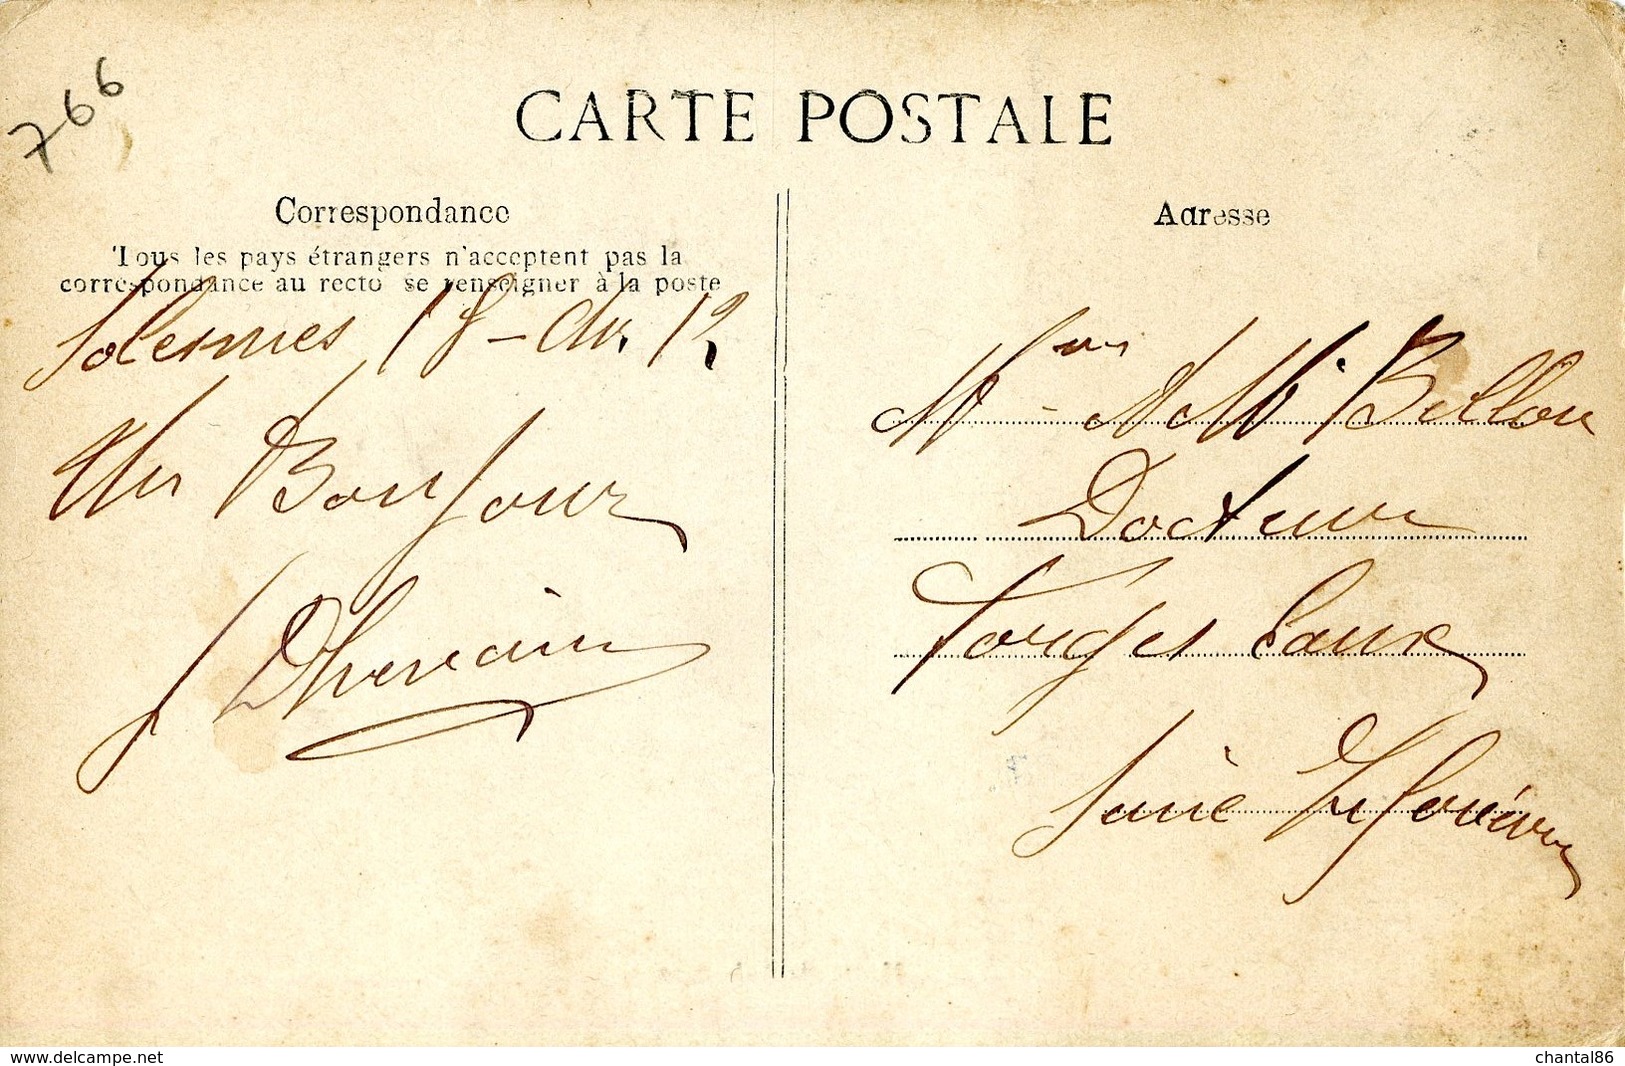 766
CARTE POSTALE
Correspondance
Tous les pays étrangers n'acceptent pas la
correspondance au recto se renseigner à la poste
Solesmes 18 - 12
Un Bonjour
Adresse
Bellou
Docteur
Forges Eaux
Seine Inférieure
www.delcampe.net
chantal86